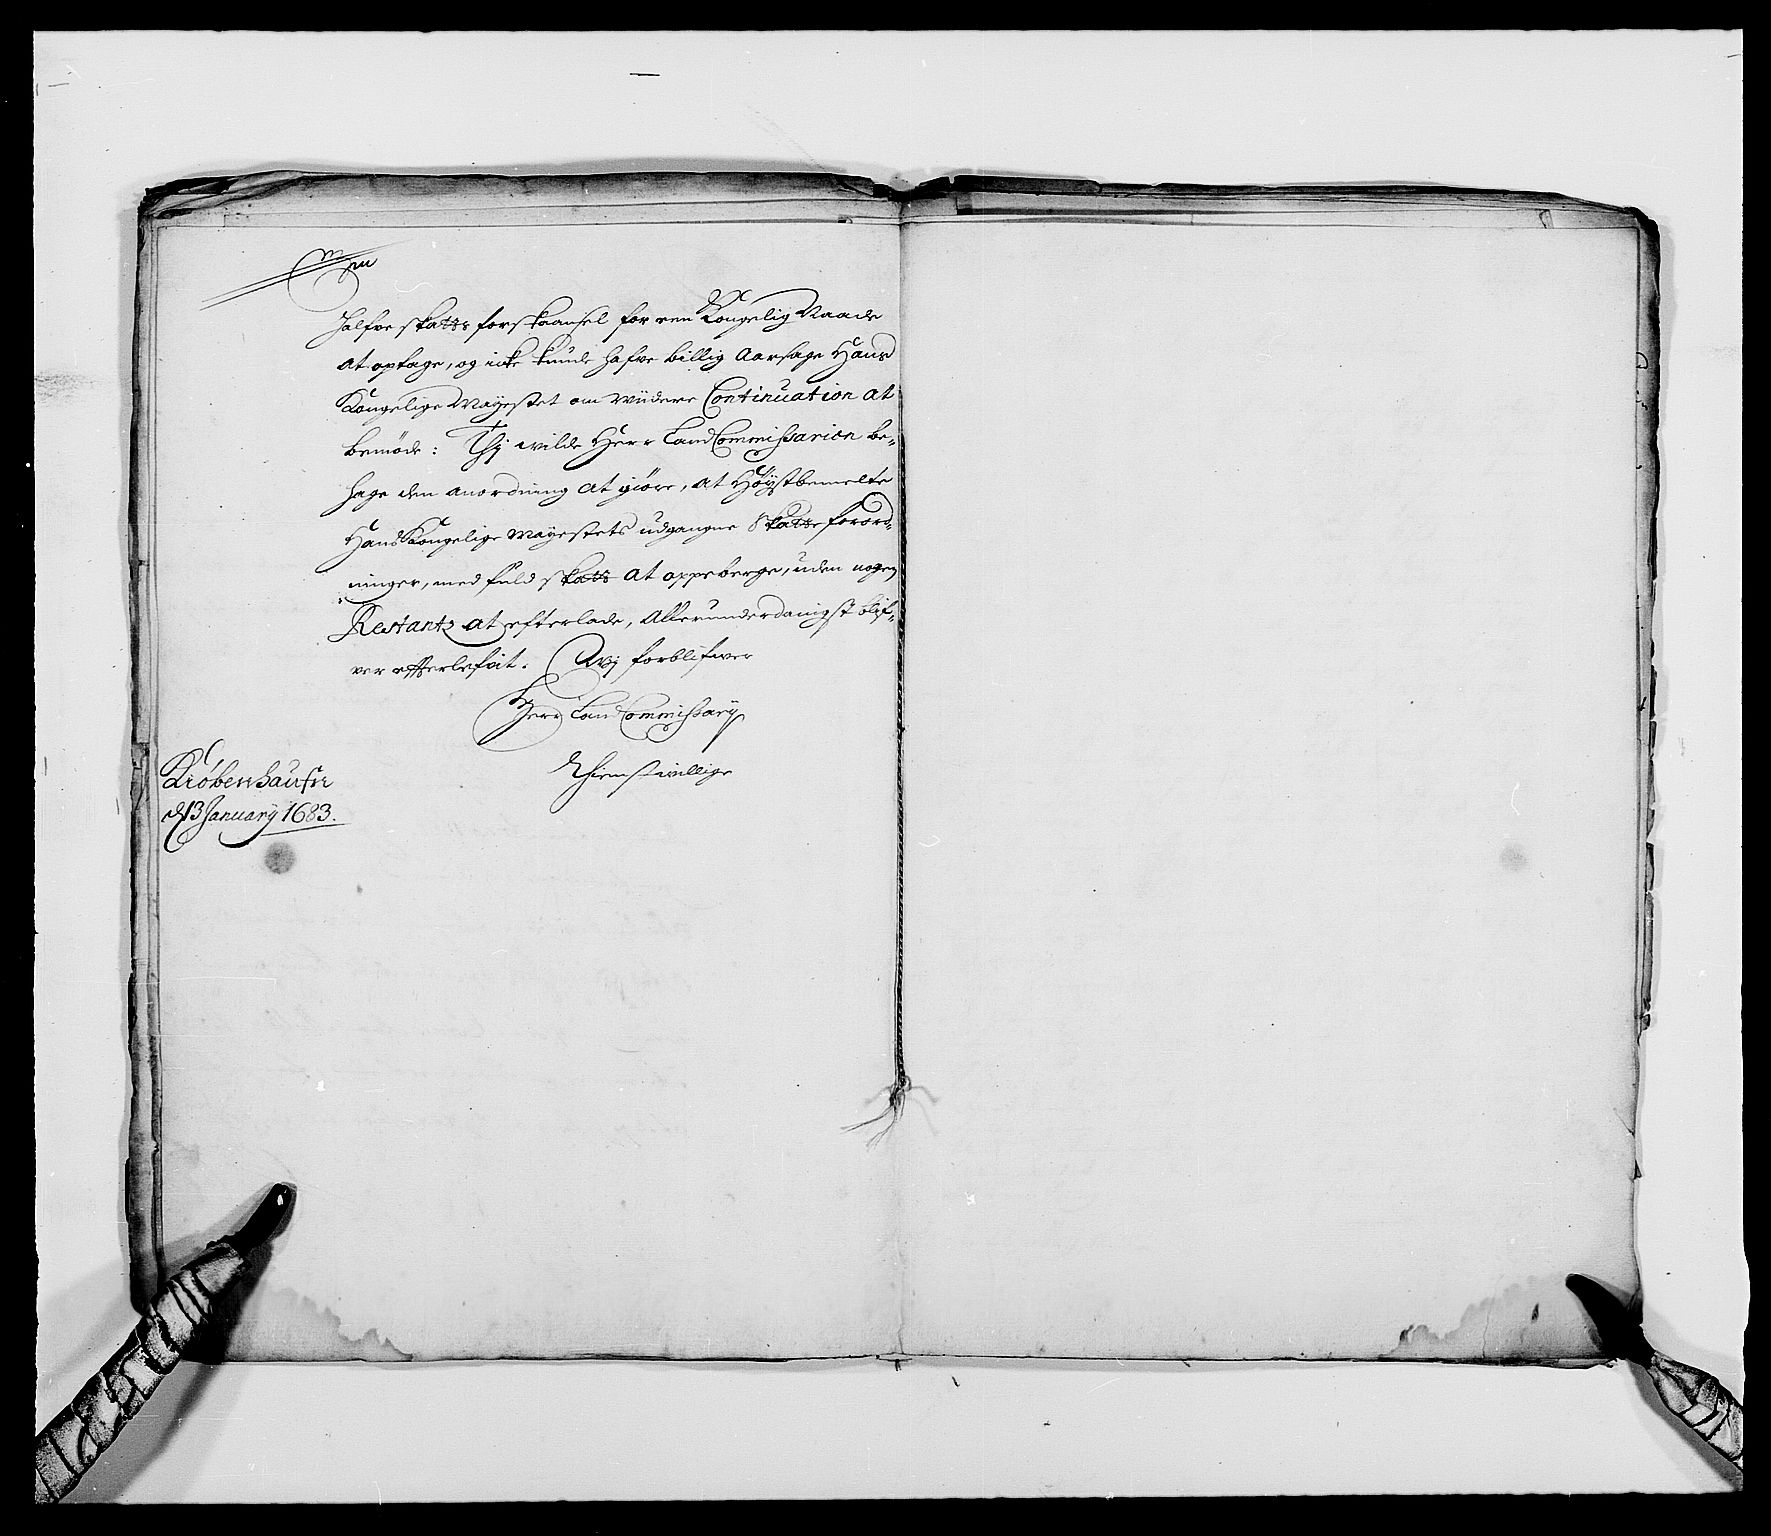 halfve skatts forskaansel for een Kongelig Naade
at optage, og icke kunde hafve billig Aarsage Hans
Kongelige Mayestet om widere Continuation at
bemöde: Thj wilde Herr LandCommissarien be-
hage den anordning at giöre, at Höystbemelte
Hans Kongelige Mayestets udgangne Skatte forord-
ninger, med fuld skatt at oppeberge, uden nogen
Restantz at efterlade, Allerunderdanigst blif-
ver efterlefvit. Wj forblifwer
Herr LandCommissary
Thienstwillige
Kiöbenhaufn
d 13 January 1683.